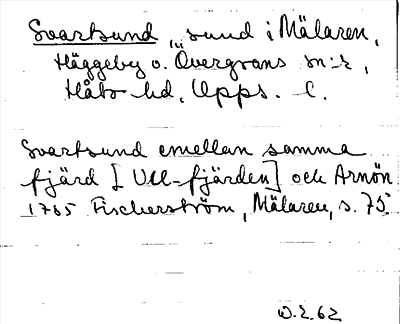 Svartsund, sund i Mälaren,
Häggeby o. Övergrans sn:r,
Håbo hd, Upps. l.
Svartsund emellan samma
fjärd [Ull-fjärden] och Arnön
1765 Fischerström, Mälaren, s. 75.
W.Z.62